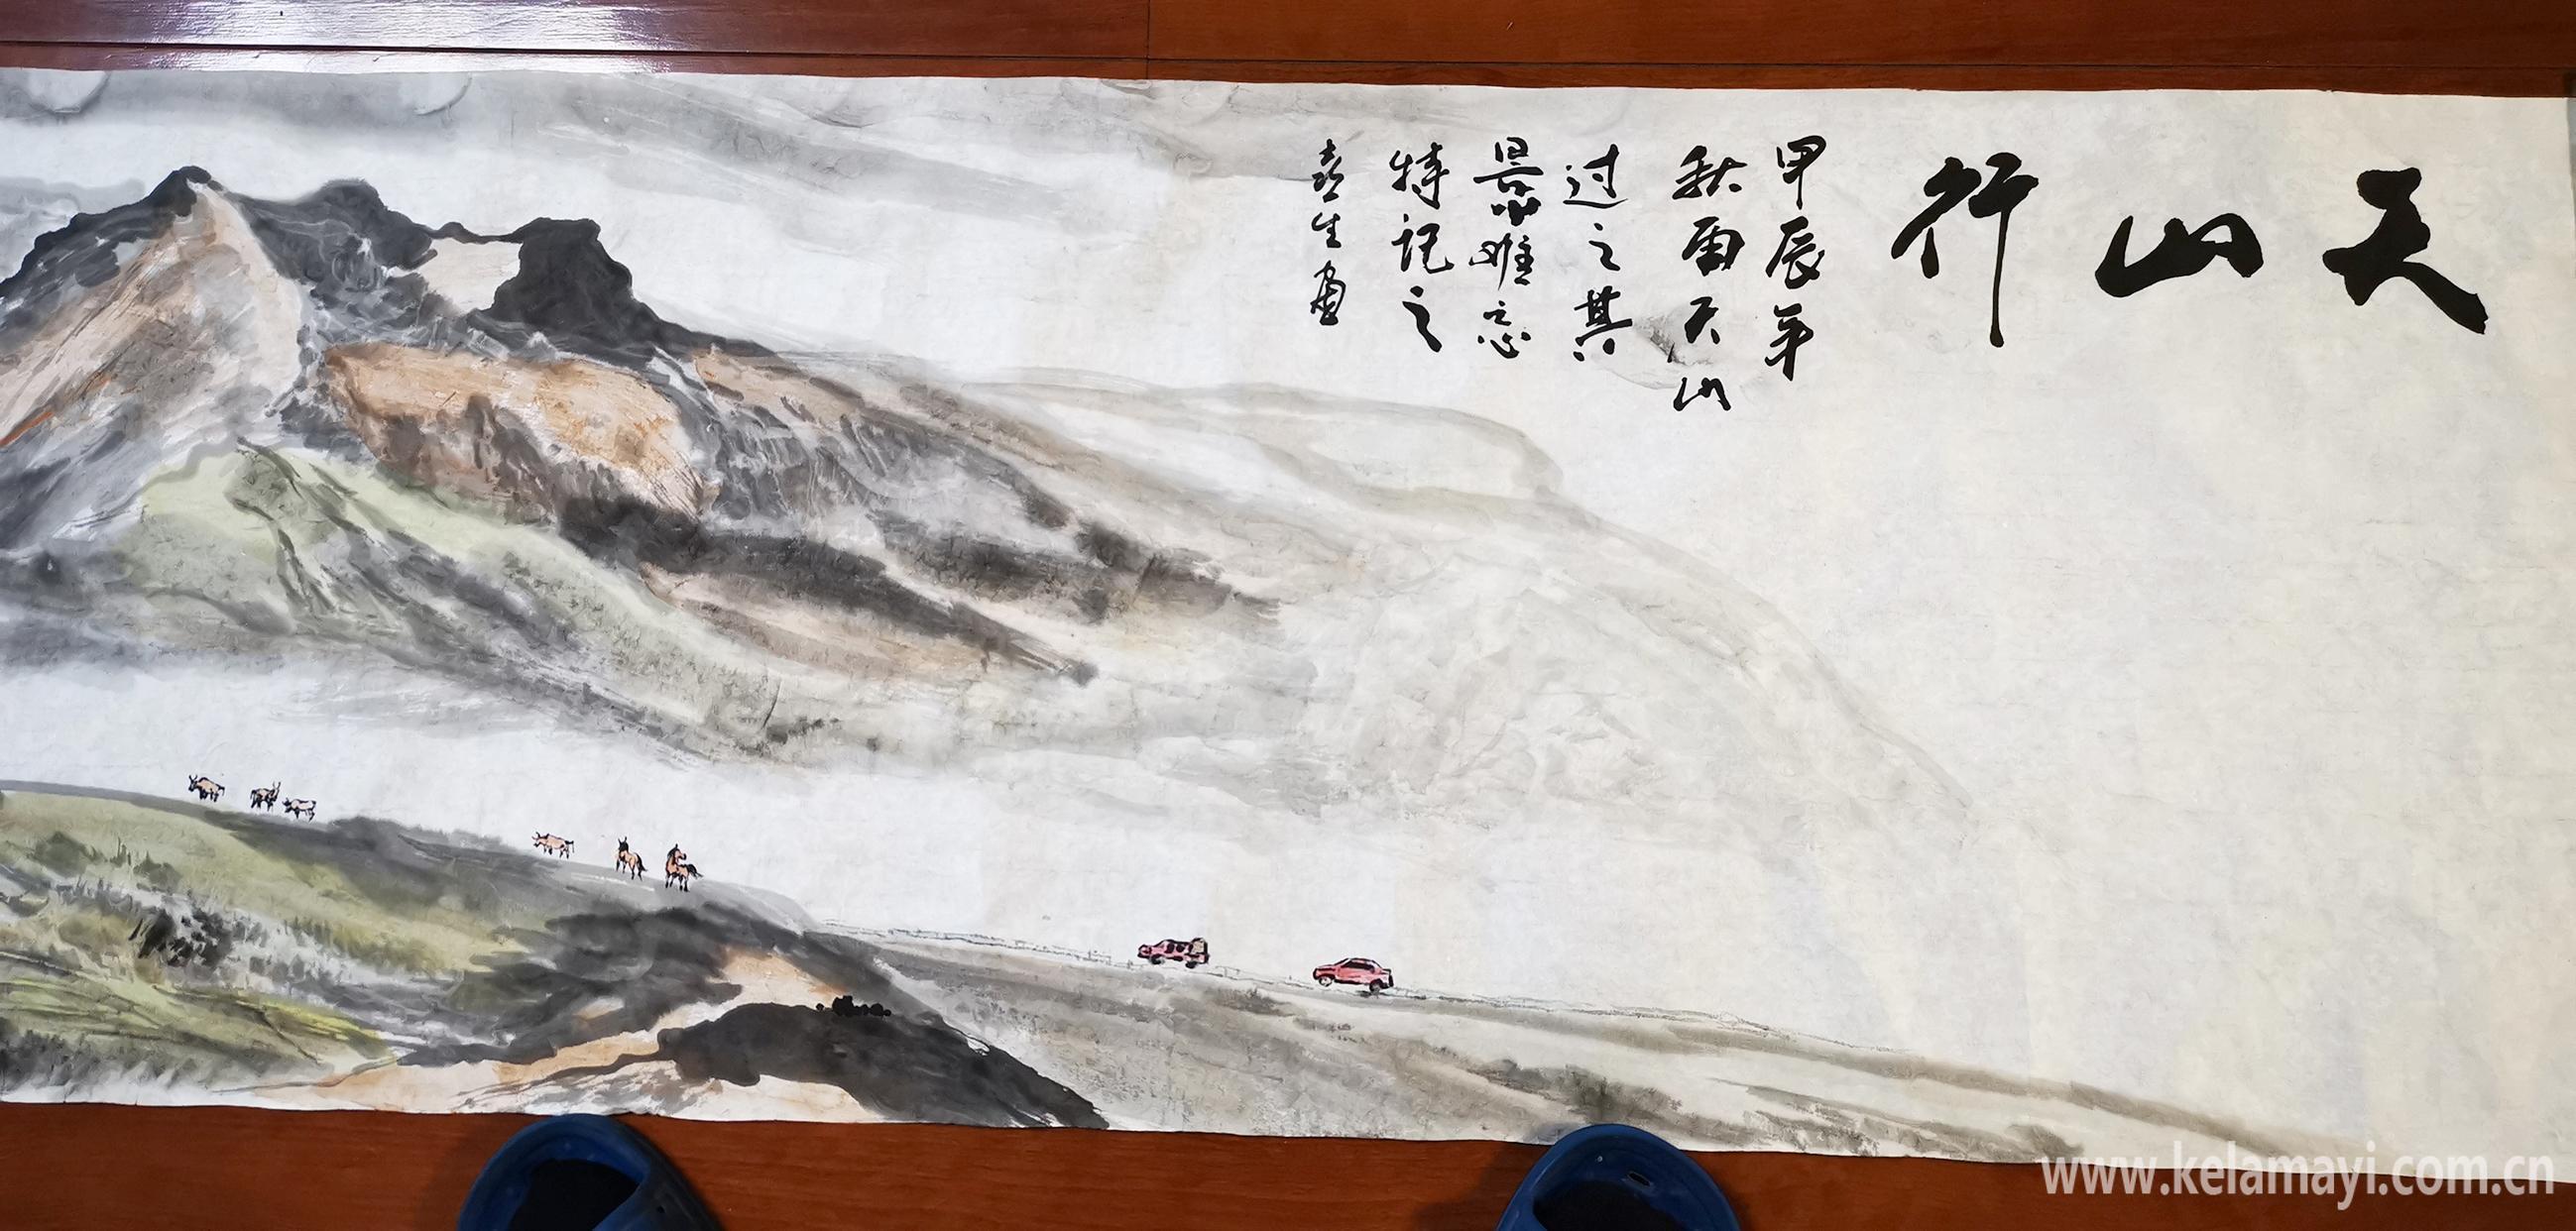 天山行
甲辰年
秋雨天山
过之其
景难忘
特记之
喜生画
www.kelamayi.com.cn